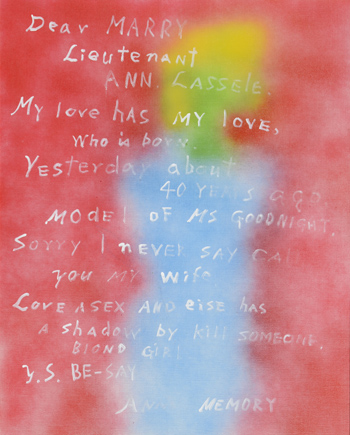 Dear MARRY
Lieutenant
ANN. LASSele.
My love has MY LOVE,
Who is born.
Yesterday about
40 YEARS ago.
MODEl OF MS GOODNIGHT.
Sorry I NEVER SAY CAL
you MY wife
LOVE A SEX AND else has
A shadow by kill SOMEONE.
BlOND GIRl
Y.S. BE-SAY
ANN MEMORY